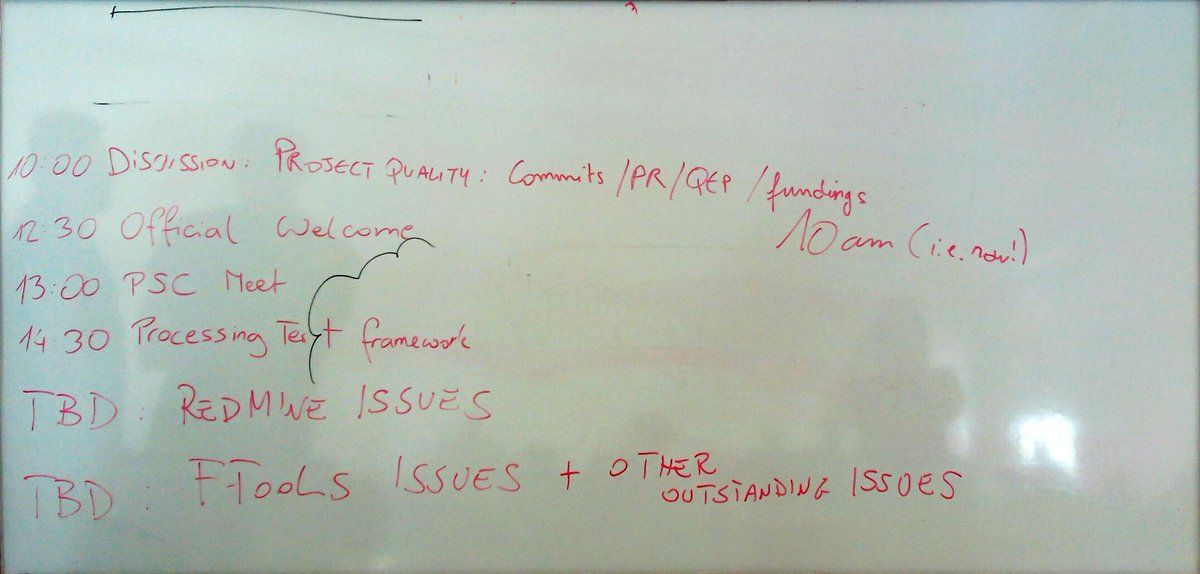 10:00 DISCUSSION: PROJECT QUALITY: Commits /PR/QEP /fundings
12:30 Official Welcome
10am (i.e. now!)
13:00 PSC Meet
14:30 Processing Test framework
TBD: REDMINE ISSUES
TBD: FTOOLS ISSUES + OTHER
OUTSTANDING ISSUES